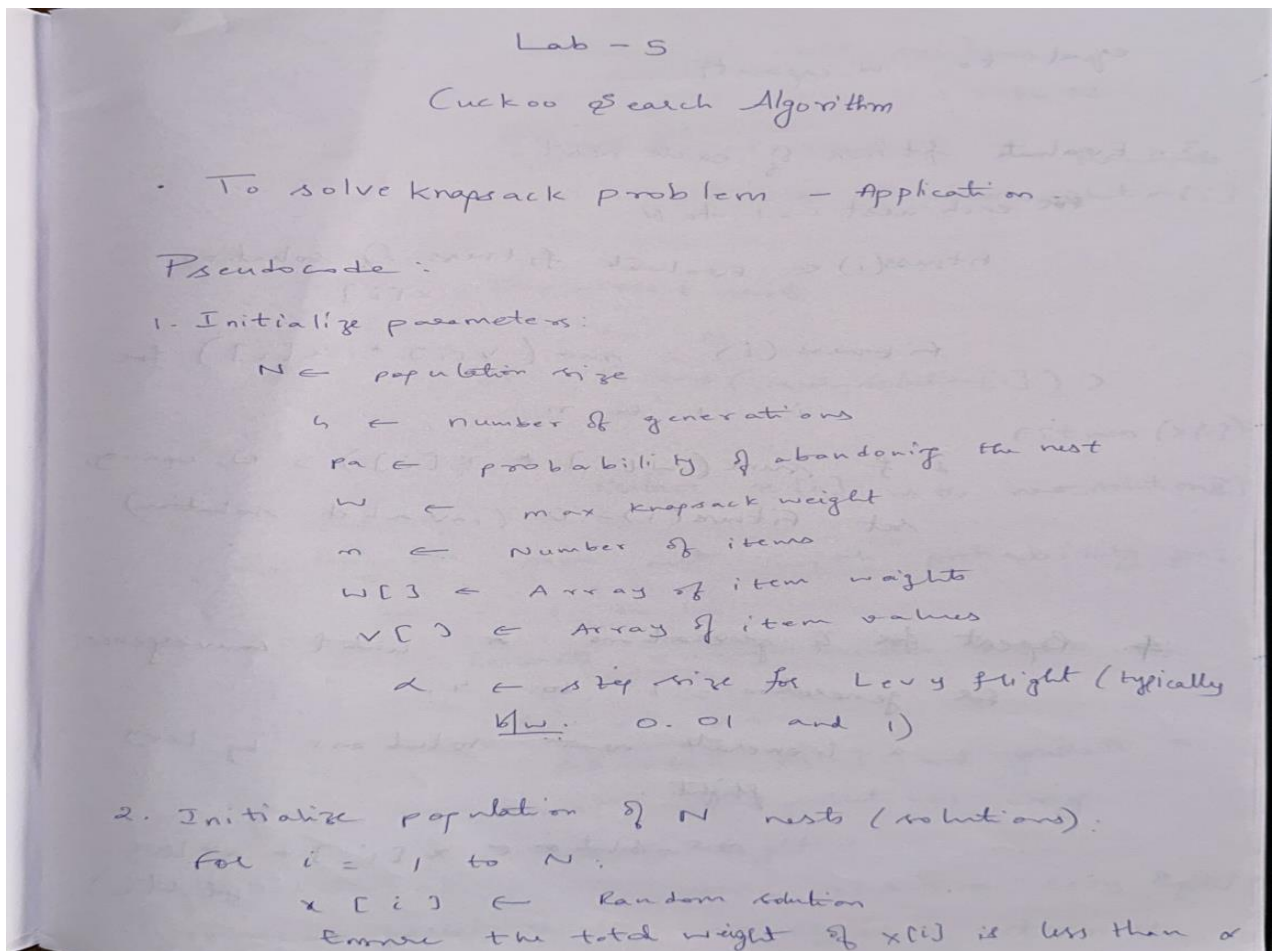 Lab - 5
Cuckoo Search Algorithm
• To solve knapsack problem - Application.
Pseudocode:
1. Initialize parameters:
N ← population size
G ← number of generations
pa ← probability of abandoning the nest
W ← max knapsack weight
n ← Number of items
w[] ← Array of item weights
v[] ← Array of item values
α ← step size for Levy flight (typically
b/w: 0.01 and 1)
2. Initialize population of N nests (solutions):
For i = 1 to N:
x[i] ← Random solution
Ensure the total weight of x[i] is less than or